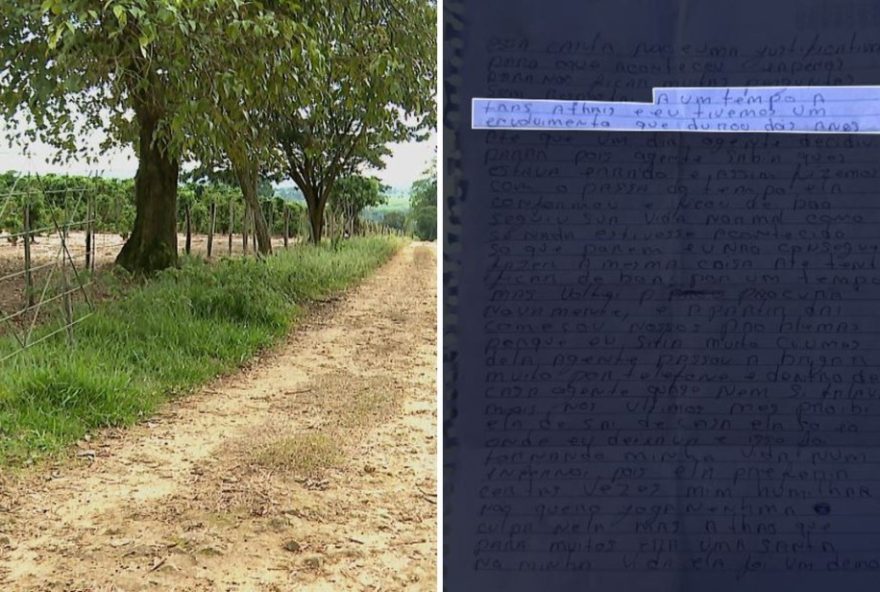 essa carta não e uma justificativa
para oque aconteceu
para não ficar muitas perguntas
sem A um tempo A
tras Athais e eu tivemos um
envouvimento que durou dos Anos
Ate que um dia, agente decidiu
parar pois agente sabia que
estava errado e assim fizemos
com o passa do tempo ela
conformou e ficou de boa
seguiu sua vida normal como
se nada estivesse acontecido
so que porem eu não consegui
fazer A mesma coisa Ate tentei
ficar de boa por um tempo
mas voltei p procura
novamente, e Aparti dai
começou nossos problemas
porque eu sitia muito ciumes
dela agente passou A brigar
muito por telefone e dentro de
casa agente quase nem si falav
mais nos ultimos mes proibi
ela de sai de casa ela so ia
onde eu deixava e isso ia
tornando minha vida num
inferno, pois ela
certas vezes mim humilhar
não quero joga nenhuma
culpa nela mas Athais que
para muitos era uma santa
na minha vida ela foi um demo